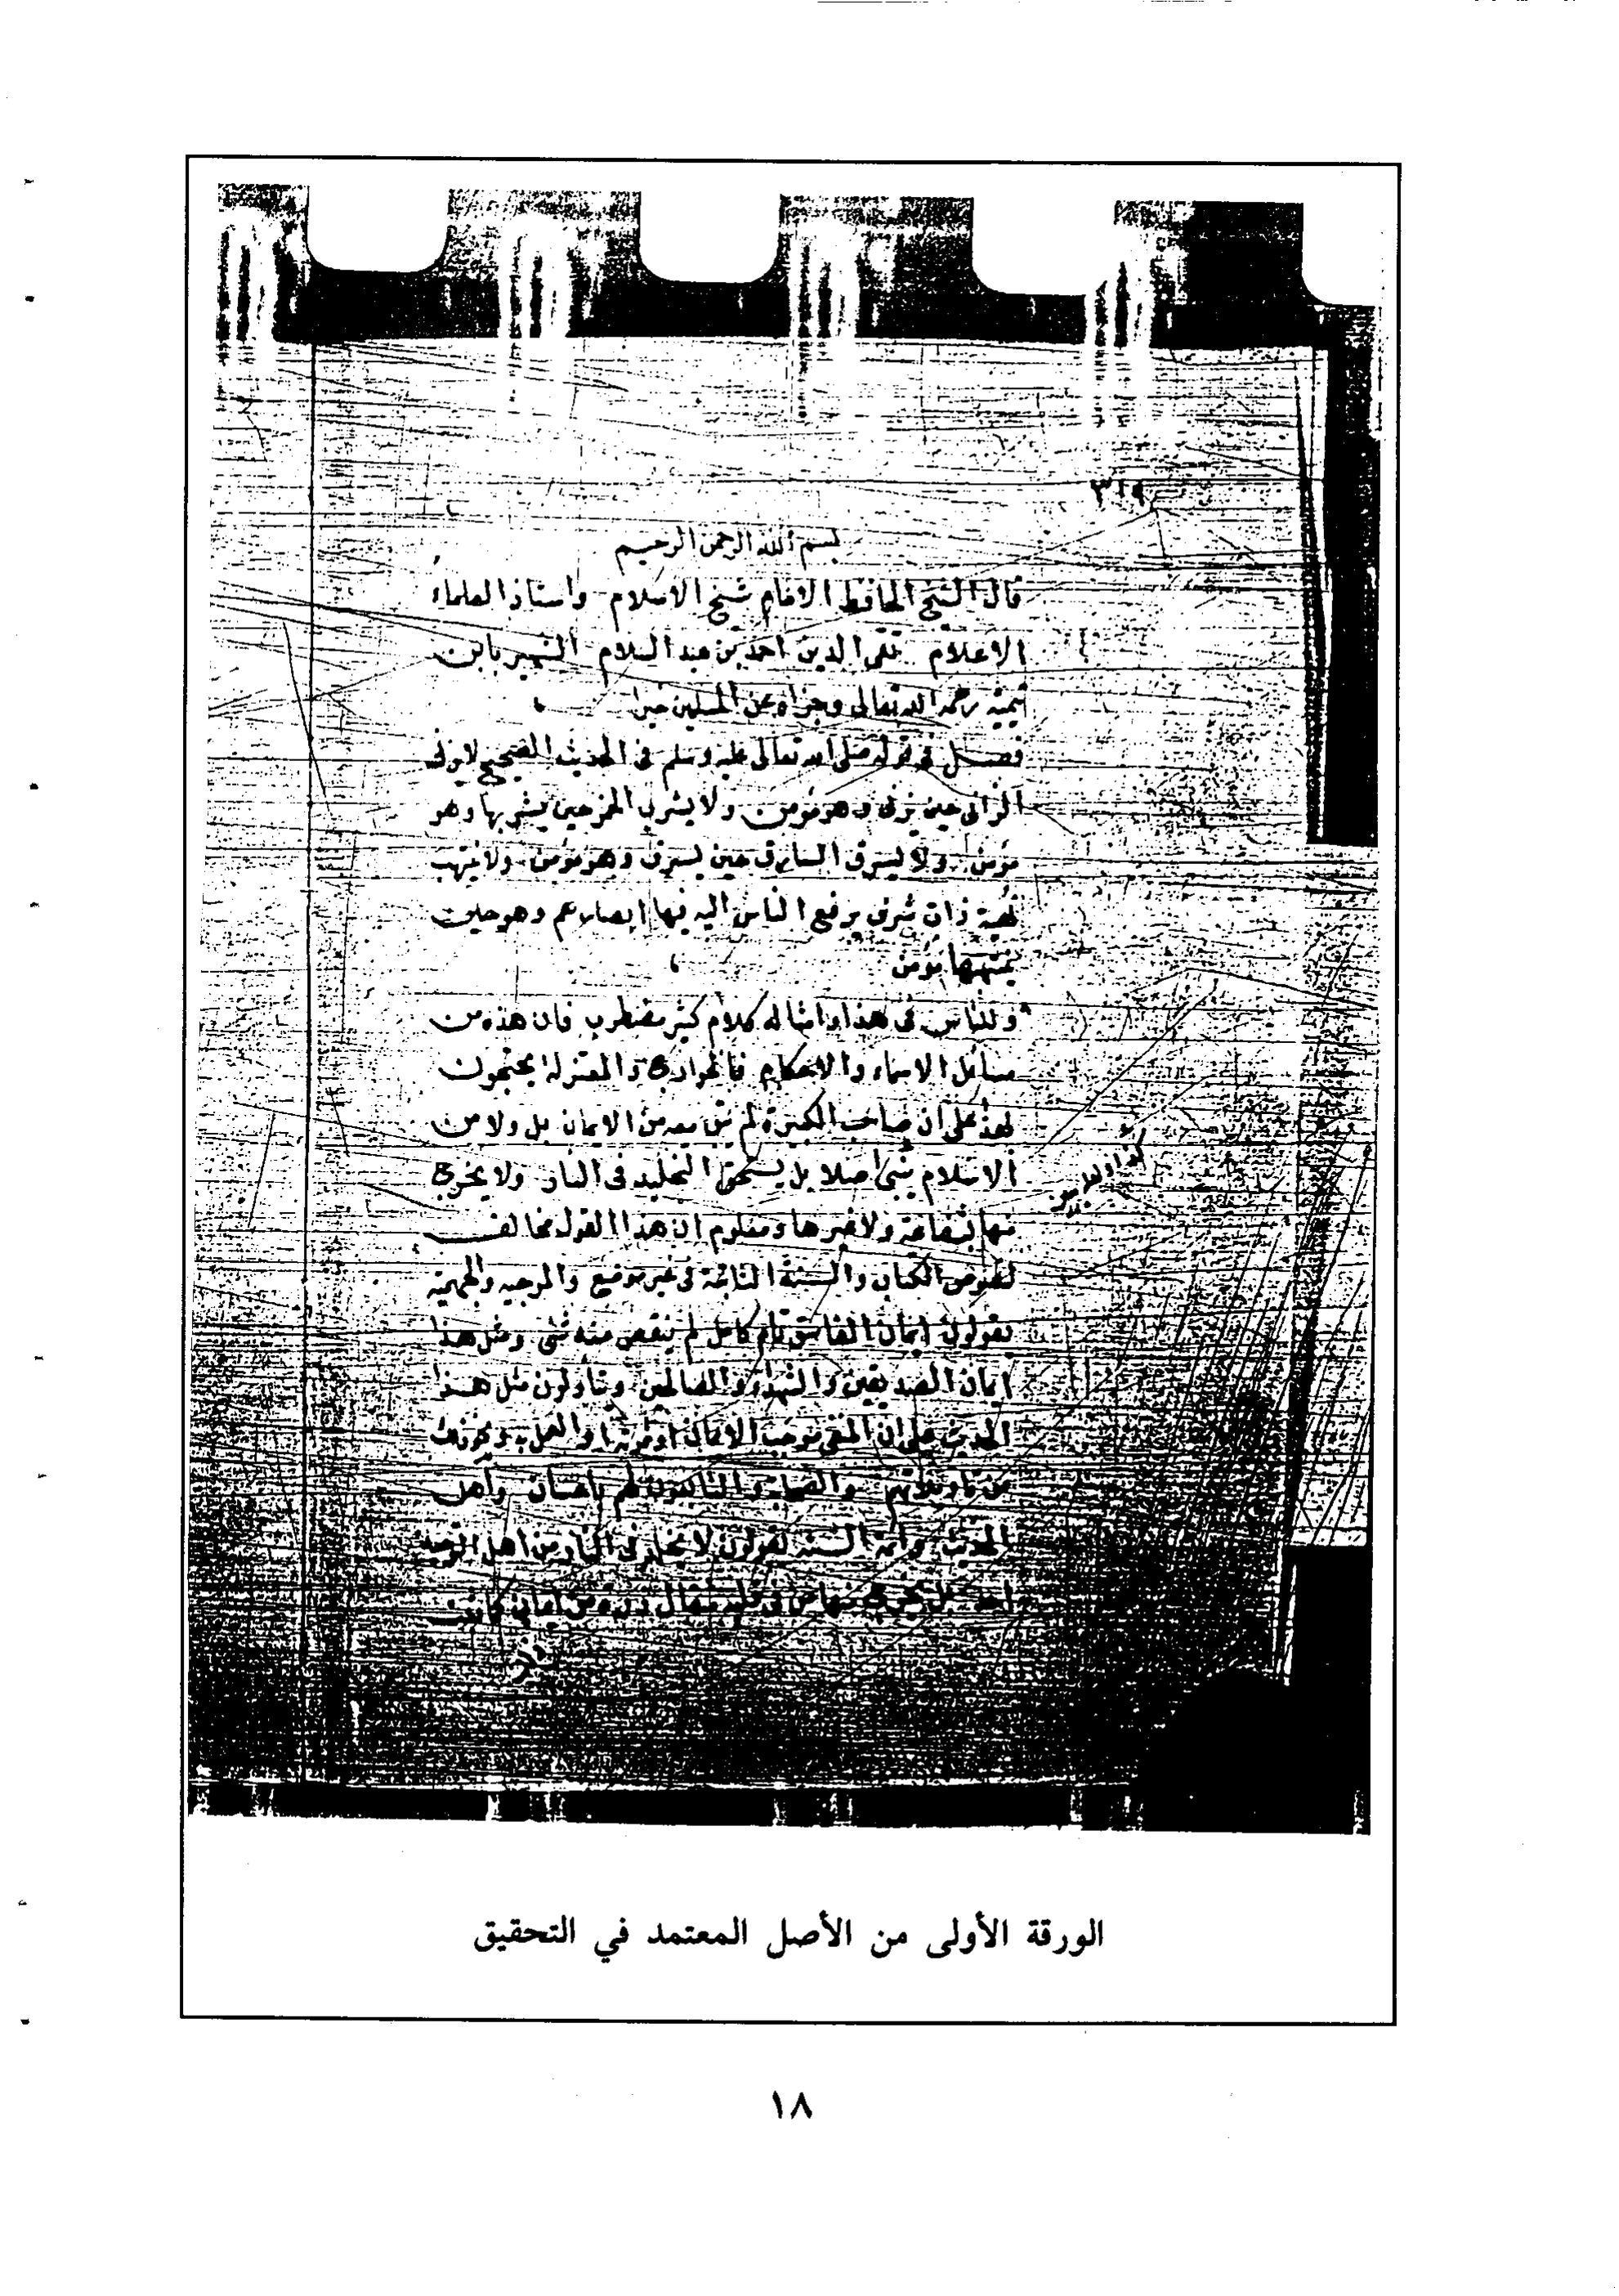 ٣١٩
بسم الله الرحمن الرحيم
قال الشيخ الحافظ الامام شيخ الاسلام واستاذ العلماء
الاعلام تقى الدين احمد بن عبد السلام الشهير بابن
تيمية رحمه الله تعالى وجزاه عن المسلمين خيرا
فصل فى قوله صلى الله تعالى عليه وسلم فى الحديث الصحيح لا يزنى
الزانى حين يزنى وهو مؤمن ولا يشرب الخمر حين يشربها وهو
مؤمن ولا يسرق السارق حين يسرق وهو مؤمن ولا ينتهب
نهبة ذات شرف يرفع الناس اليه فيها ابصارهم وهو حين
ينتهبها مؤمن
وللناس فى هذا وامثاله كلام كثير مضطرب فان هذه من
مسائل الاسماء والاحكام فالخوارج والمعتزلة يحتجون
بهذا على ان صاحب الكبيرة لم يبق معه من الايمان بل ولا من
الاسلام شئ اصلا بل يستحق التخليد فى النار ولا يخرج
منها بشفاعة ولا غيرها ومعلوم ان هذا القول مخالف
لنصوص الكتاب والسنة الثابتة فى غير موضع والمرجيه والجهمية
يقولون ايمان الفاسق تام كامل لم ينقص منه شئ ومثل هذا
ايمان الصديقين والشهداء والصالحين ويتأولون مثل هذا
الحديث على ان المنفى موجب الايمان او ثمرته او العمل به ونحو ذلك
من تأويلاتهم والصحابة والتابعون لهم باحسان واهل
الحديث وائمة السنة يقولون لا يخلد فى النار من اهل التوحيد
احد بل يخرج منها من فى قلبه مثقال ذرة من ايمان
الورقة الأولى من الأصل المعتمد في التحقيق
١٨